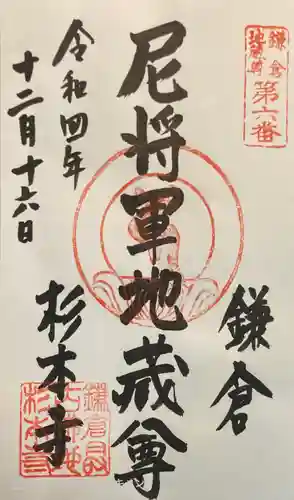 鎌倉
地蔵尊
第六番
鎌倉
尼将軍地蔵尊
令和四年
十二月十六日
杉本寺